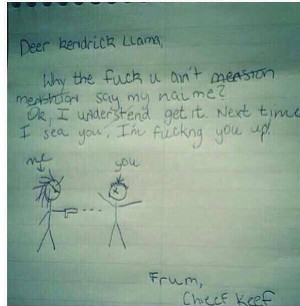 Deer Kendrick Llama,
Why the fuck u ain't measion
menshion say my naime?
Ok, I understend get it. Next time
I sea you, I'm fuckng you up!
me
you
Frum,
Chieef Keef